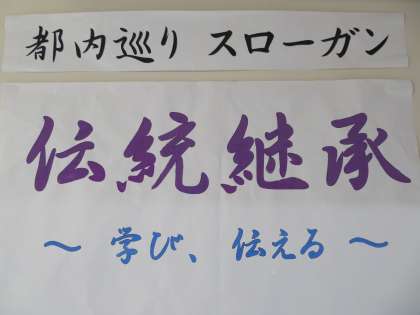 都内巡り スローガン
伝統継承
～ 学び、伝える ～